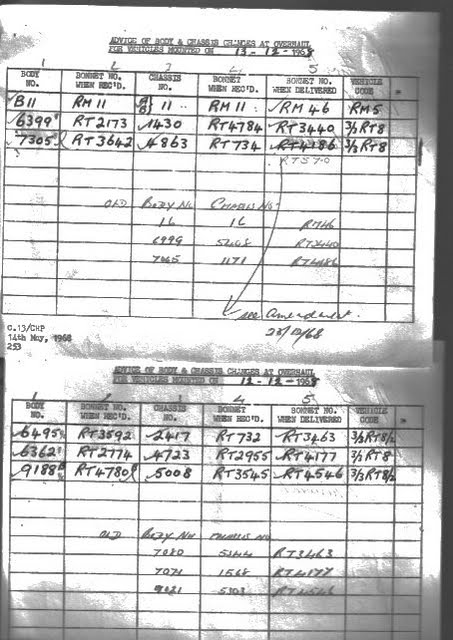 ADVICE OF BODY & CHASSIS CHANGES AT OVERHAUL
FOR VEHICLES MOUNTED ON 13-12-1968
1 2 3 4 5
BODY NO. BONNET NO. WHEN REC'D. CHASSIS NO. BONNET WHEN REC'D. BONNET NO. WHEN DELIVERED VEHICLE CODE
B11 RM 11 11 RM 11 RM 46 RM5
6399 RT2173 1430 RT4784 RT3440 3/3 RT8
7305 RT3642 4863 RT734 RT4186 3/3 RT8
RT570
OLD BODY NO CHASSIS NO
16 16 RM46
6999 RT3440
7065 1171 RT4186
see Amendment.
23/12/68
C.13/CHP
14th May, 1968
253
ADVICE OF BODY & CHASSIS CHANGES AT OVERHAUL
FOR VEHICLES MOUNTED ON 12-12-1968
1 2 3 4 5
BODY NO. BONNET NO. WHEN REC'D. CHASSIS NO. BONNET WHEN REC'D. BONNET NO. WHEN DELIVERED VEHICLE CODE
6495 RT3592 2417 RT732 RT3463 3/3RT8/2
6362 RT2774 4723 RT2955 RT4177 3/2 RT8
9188 RT4780 5008 RT3545 RT4546 3/3 RT8/2
OLD BODY NO CHASSIS NO
7080 5144 RT3463
7071 1568 RT4177
9021 5303 RT4546